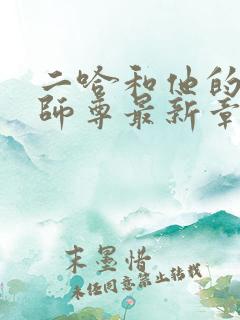 二哈和他的
師尊最新章
末墨惜
未经同意禁止转载